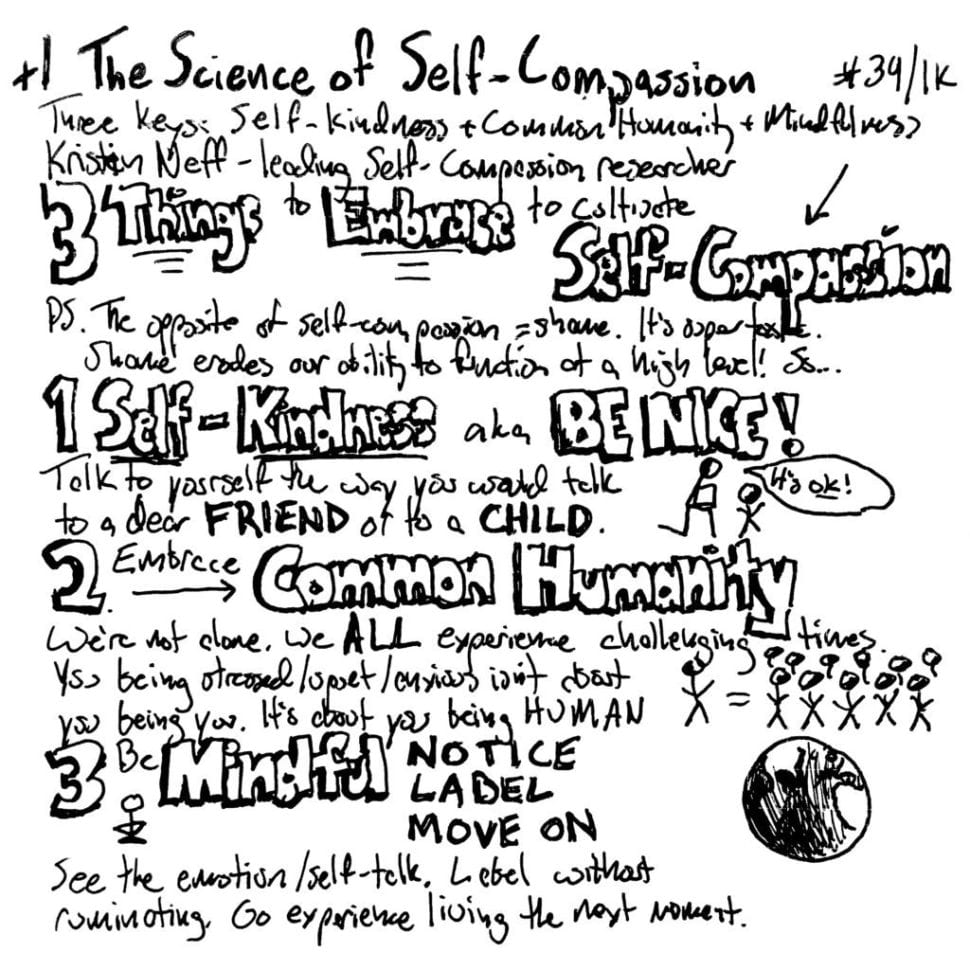 +1 The Science of Self-Compassion #39/1K
Three Keys: Self-Kindness + Common Humanity + Mindfulness
Kristin Neff - leading Self-Compassion researcher
3 Things to Embrace to cultivate
Self-Compassion
PS. The opposite of self-compassion = shame. It's super toxic.
Shame erodes our ability to function at a high level! So...
1 Self-Kindness aka BE NICE!
Talk to yourself the way you would talk
to a dear FRIEND or to a CHILD.
It's ok!
2. Embrace Common Humanity
We're not alone. We ALL experience challenging times.
You being stressed/upset/anxious isn't about
you being you. It's about you being HUMAN
3 Be Mindful NOTICE
LABEL
MOVE ON
See the emotion/self-talk. Label without
ruminating. Go experience living the next moment.